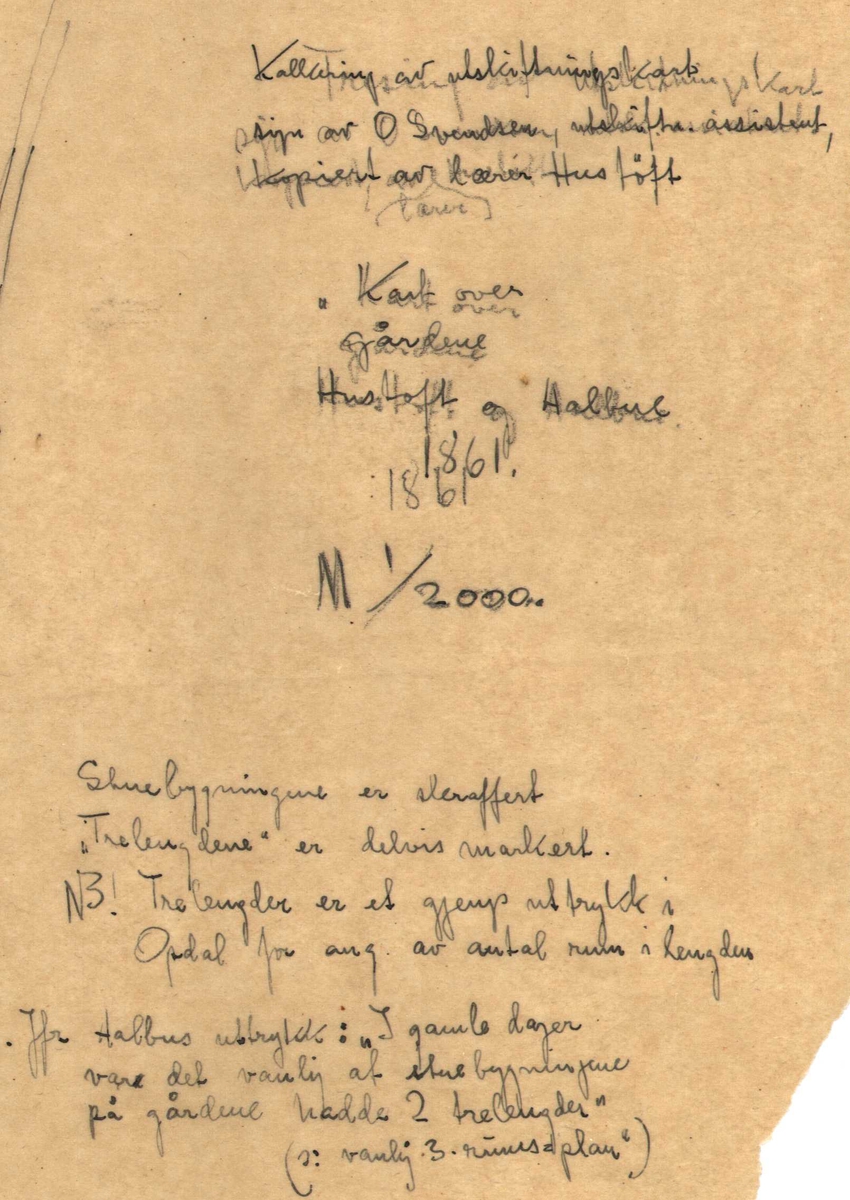 Kalkering av utskiftningskart
sign av O Svendsen, utskiftn. assistent,
kopiert av lærer Hustöft
"Kart over
gårdene
Hustoft og Halbue
1861.
1861
M 1/2000.
Stuebygningene er skraffert
„Trelengdene“ er delvis markert.
NB! Trelengder er et gjengs uttrykk i
Opdal for ang. av antal rum i lengden
Jfr Halbus uttrykk: „I gamle dager
vare det vanlig at stuebygningene
på gårdene hadde 2 trelengder"
(ɔ: vanlig 3-rums=plan")